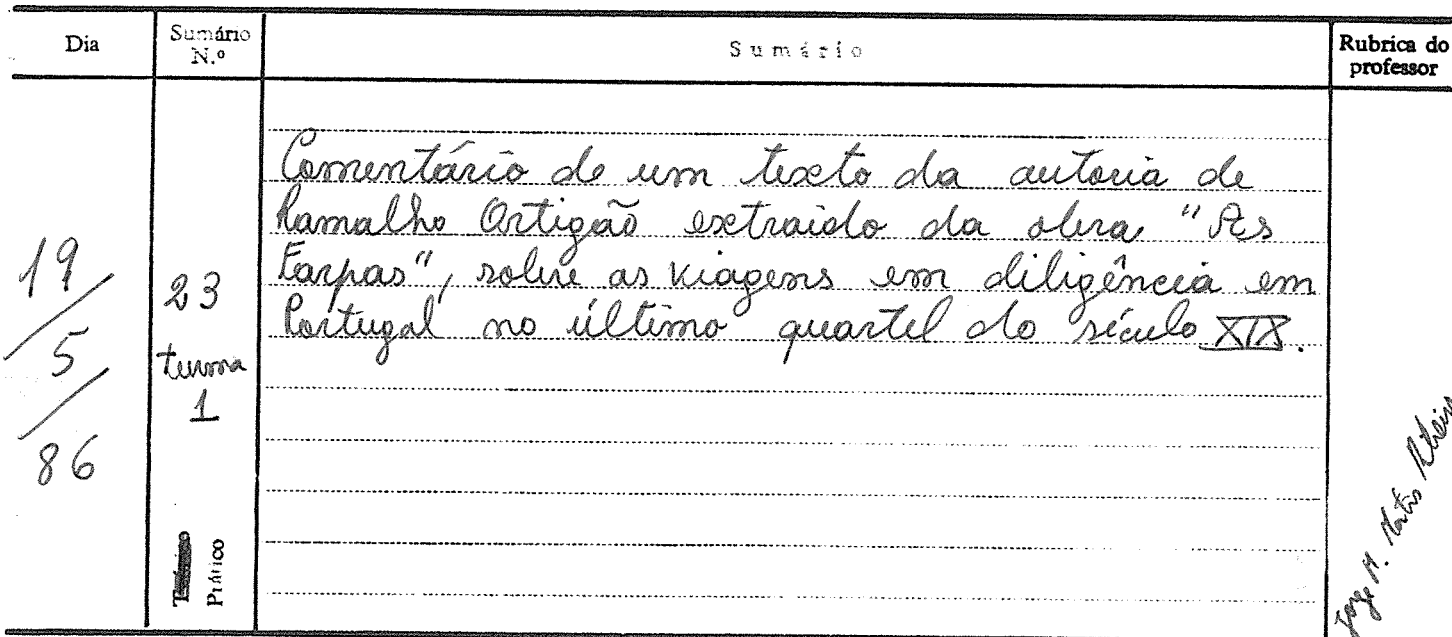 Dia
Sumário N.º
Sumário
Rubrica do professor
19/5/86
23
turma
1
Prático
Comentário de um texto da autoria de
Ramalho Ortigão extraido da obra "As
Farpas", sobre as viagens em diligência em
Portugal no último quartel do século XIX.
Jorge M. Matos